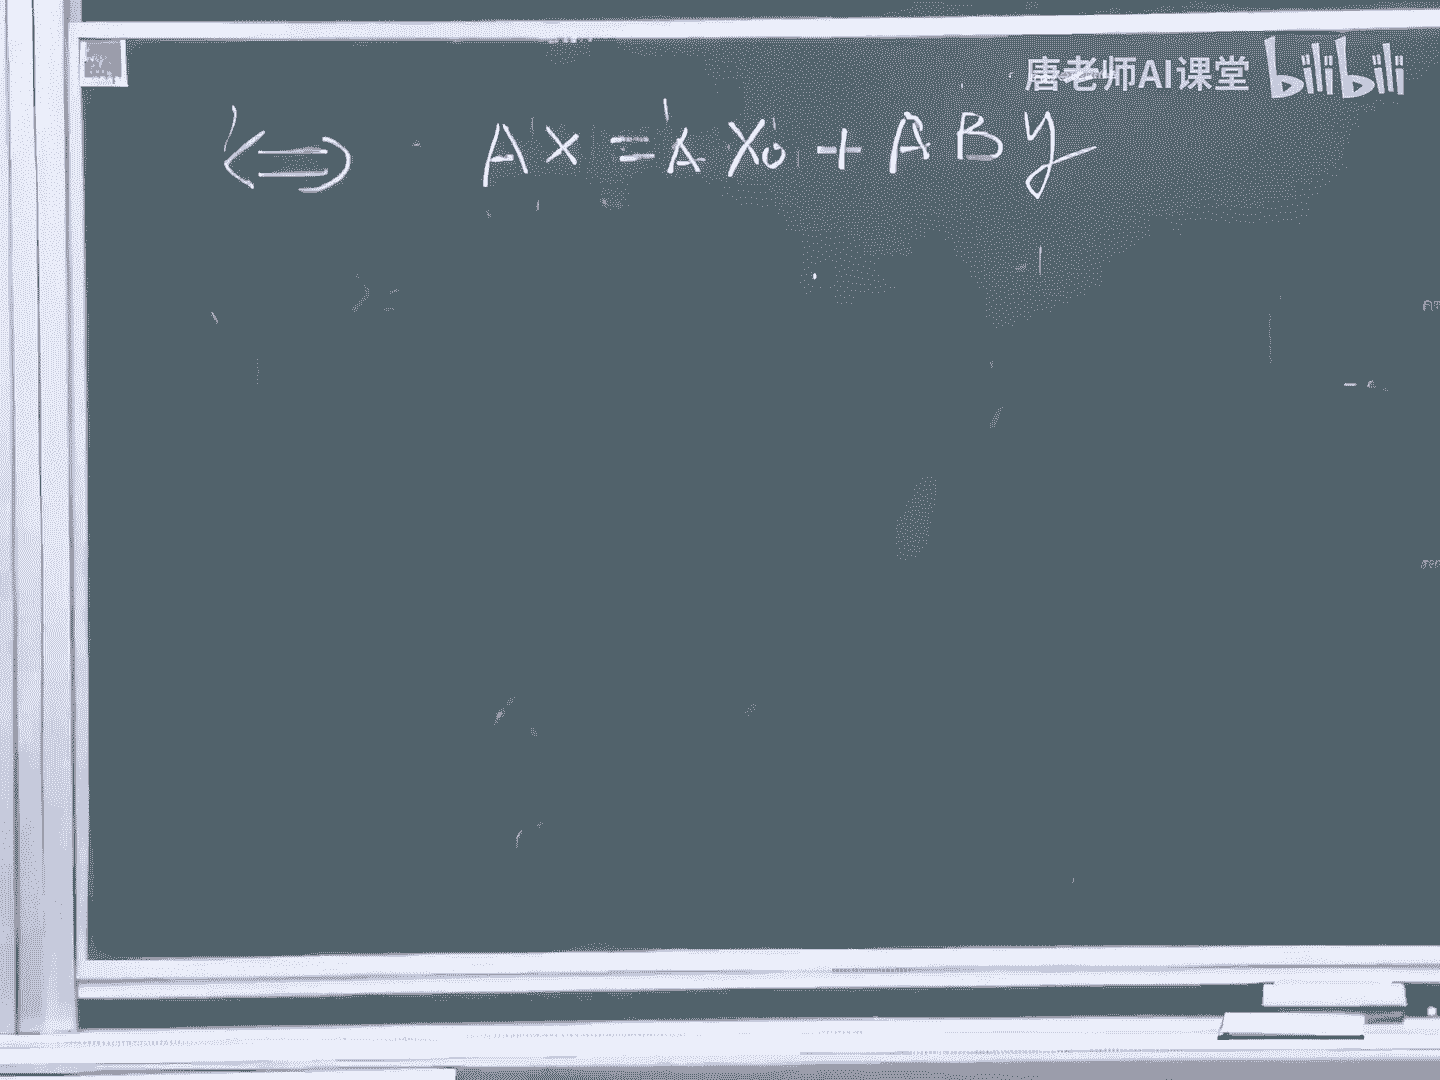 唐老师AI课堂 bilibili
⇔ AX = AX₀ + ABY